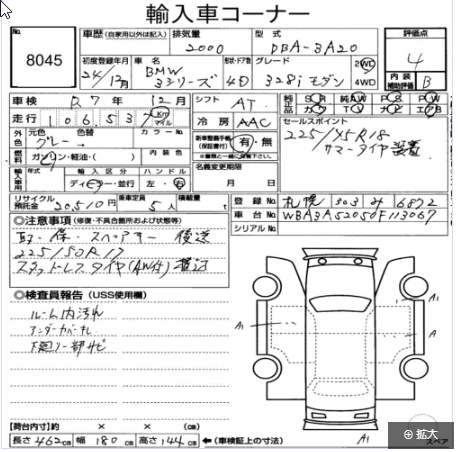 輸入車コーナー
No. 8045
車歴 (自家用以外は記入) 排気量 2000 型式 DBA-3A20 評価点 4
初度登録年月 24/12月 車名 BMW 3シリーズ 形状・ドア数 4D グレード 328i モダン 2WD 4WD 内装補助評価 B
車検 R7年12月 シフト AT 純正品 SR 純AW PS PW
走行 106,537 Km マイル 冷房 AAC カワ TV ナビ エアB
外色 元色 グレー 色替 カラーNo. 新車整備手帳(保証書) 有・無 セールスポイント
燃料 ガソリン・軽油・( ) 内装色 ※書類と一緒に保管下さい。 225/45R18
サマータイヤ装着
輸入車用 年式 輸入区分 ディーラー・並行 ハンドル 左・右 名義変更期限 月 日
リサイクル預託金 20510円 乗車定員 5人 積載量 登録No. 札幌 303 6872
車台No. WBA3A52050F113067
シリアルNo.
◎注意事項 (修復・不具合箇所および状態等)
取・保・スペアキー 後送
225/50R17
スタッドレスタイヤ(AW付)積込
◎検査員報告 (USS使用欄)
ルーム内汚れ
アンダーカバーキズ
下廻り一部サビ
A1
A1
A
A1
スペア
【荷台内寸】約 × ×
長さ 462cm 幅 180cm 高さ 144cm ←(車検証上の寸法)
拡大